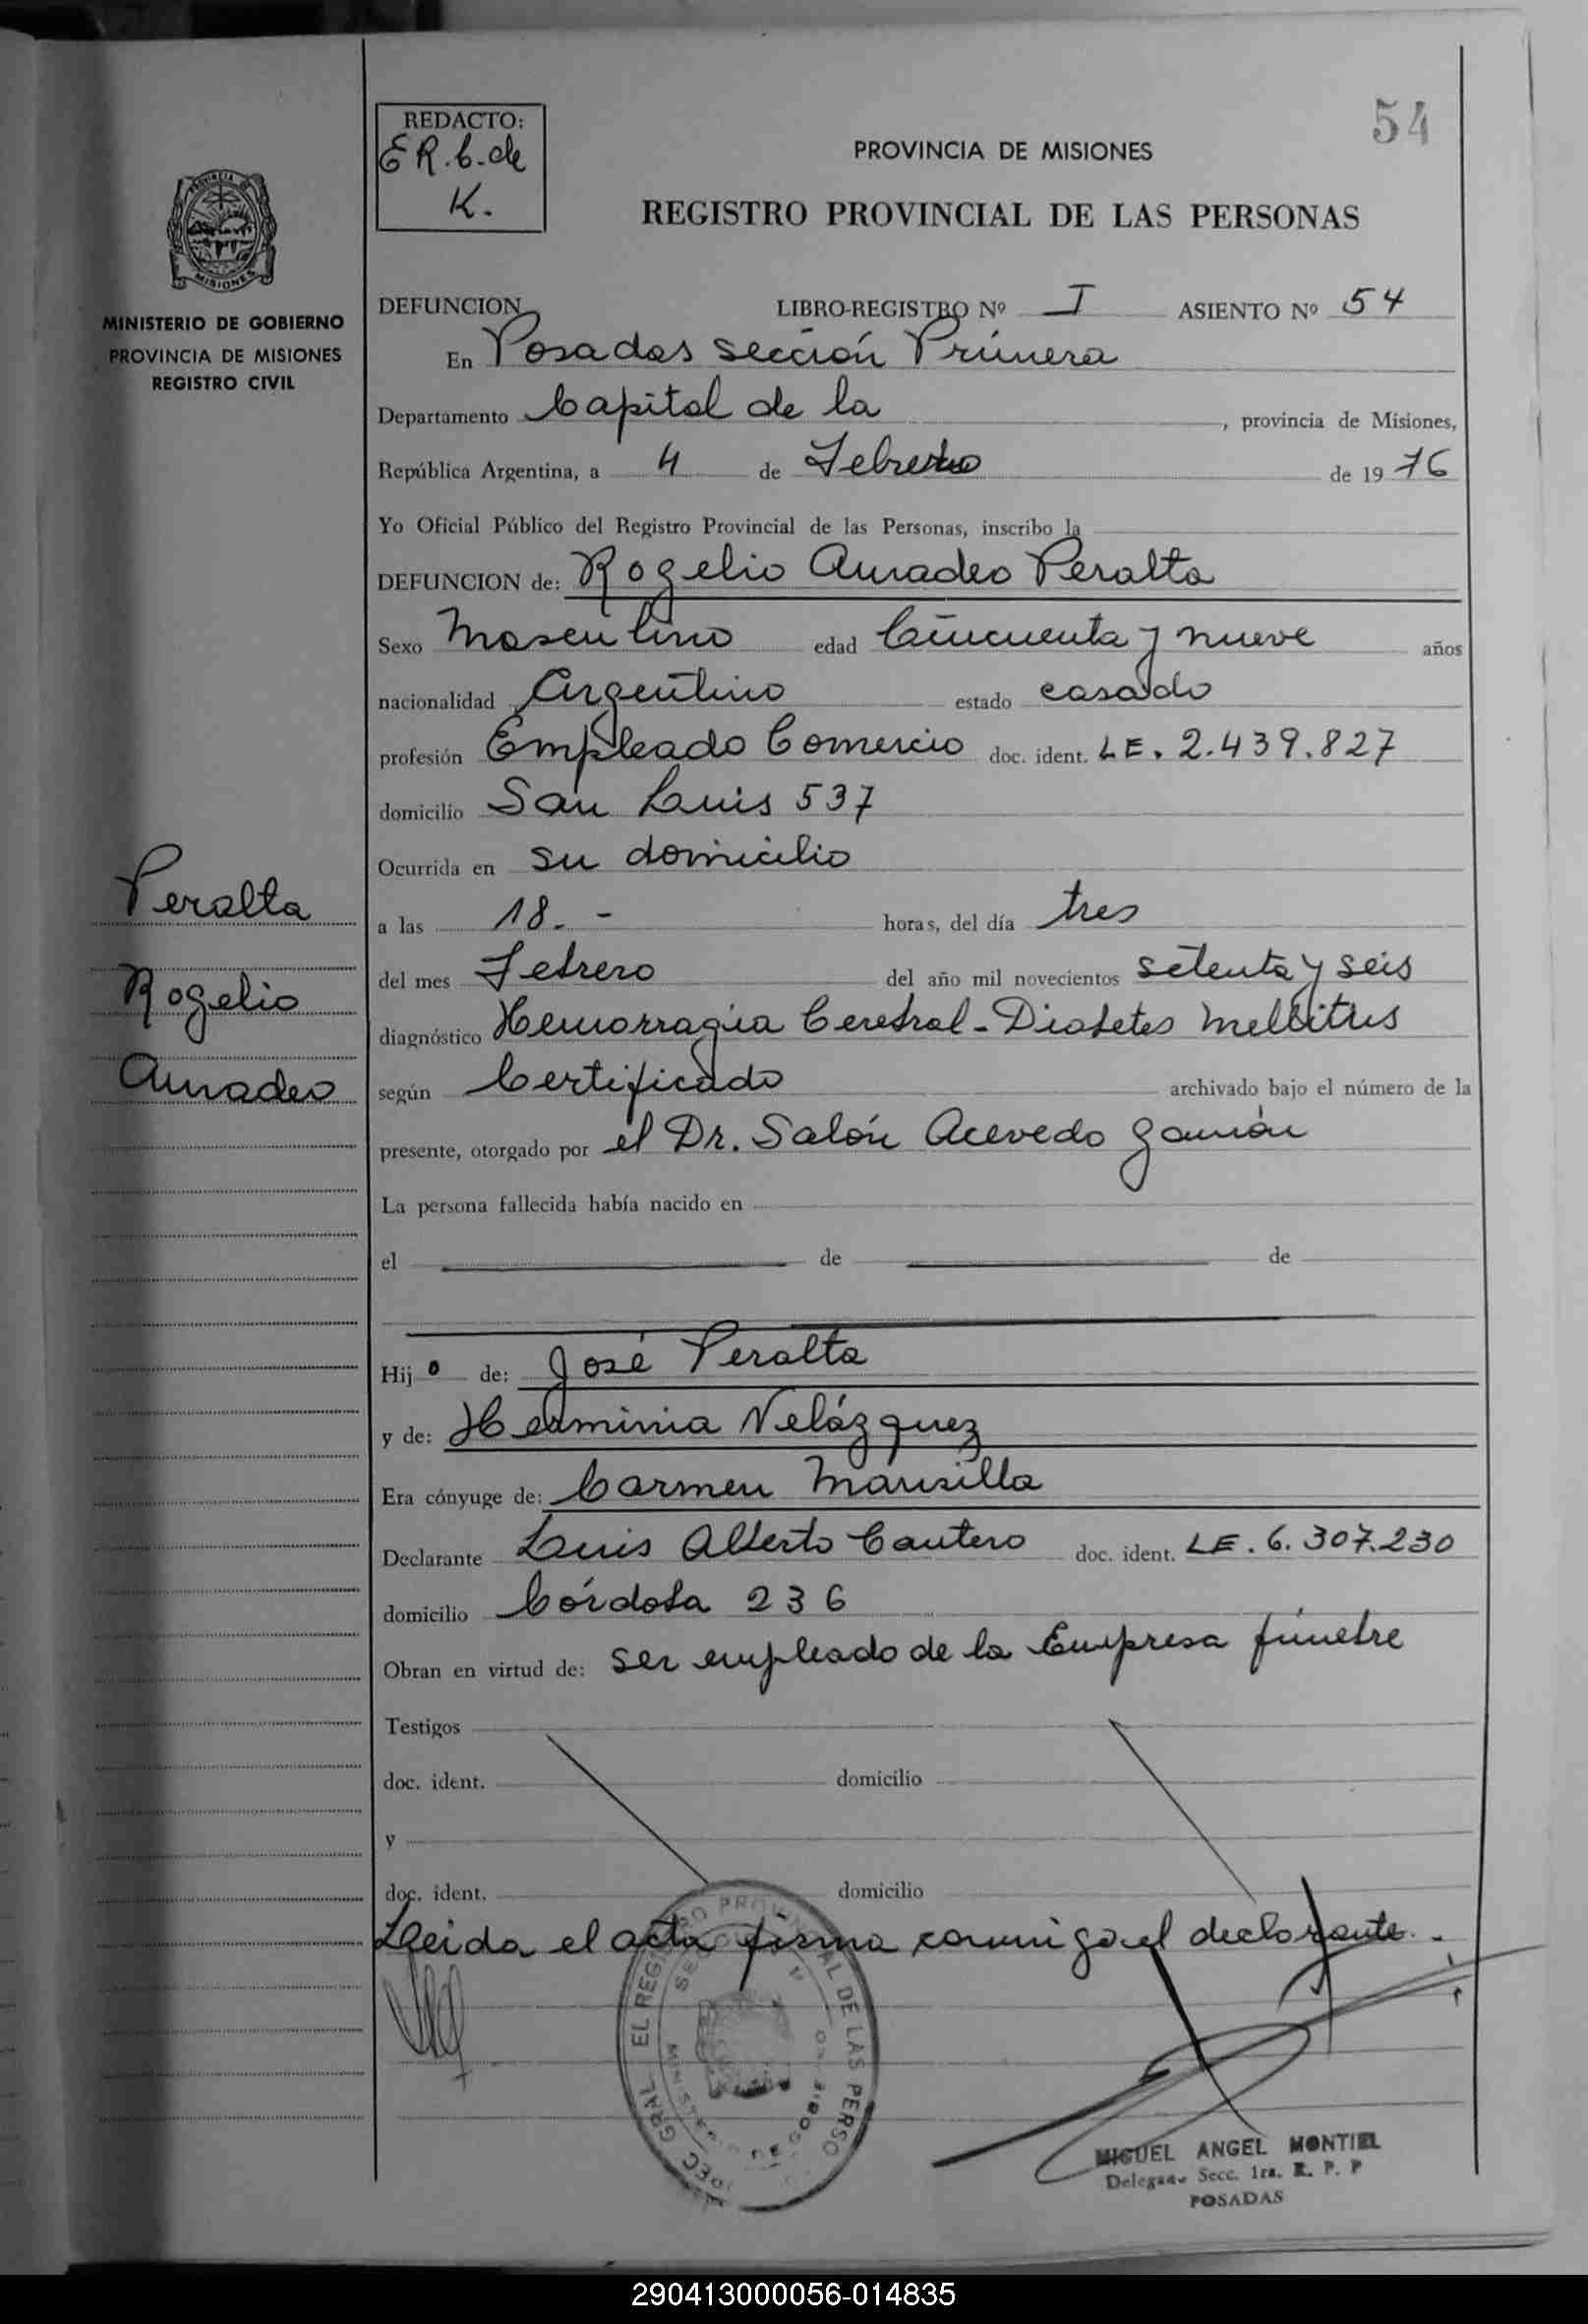 54
REDACTO:
E R. C. de
K.
PROVINCIA DE MISIONES
REGISTRO PROVINCIAL DE LAS PERSONAS
PROVINCIA DE
MISIONES
MINISTERIO DE GOBIERNO
PROVINCIA DE MISIONES
REGISTRO CIVIL
DEFUNCION LIBRO-REGISTRO Nº I ASIENTO Nº 54
En Posadas sección Primera
Departamento Capital de la , provincia de Misiones,
República Argentina, a 4 de Febrero de 1976
Yo Oficial Público del Registro Provincial de las Personas, inscribo la
DEFUNCION de: Rogelio Amadeo Peralta
Sexo Masculino edad Cincuenta y nueve años
nacionalidad Argentino estado casado
profesión Empleado Comercio doc. ident. LE. 2.439.827
domicilio San Luis 537
Ocurrida en su domicilio
a las 18.- horas, del día tres
del mes Febrero del año mil novecientos setenta y seis
diagnóstico Hemorragia Cerebral - Diabetes Mellitus
según Certificado archivado bajo el número de la
presente, otorgado por el Dr. Salón Acevedo
La persona fallecida había nacido en
el de de
Hijo de: José Peralta
y de: Herminia Velázquez
Era cónyuge de: Carmen Mansilla
Declarante Luis Alberto Cantero doc. ident. LE. 6.307.230
domicilio Córdoba 236
Obran en virtud de: ser empleado de la Empresa fúnebre
Testigos
doc. ident. domicilio
y
doc. ident. domicilio
Leida el acta firma conmigo el declarante.-
Peralta
Rogelio
Amadeo
MIGUEL ANGEL MONTIEL
Secc. 1ra. R. P. P
POSADAS
290413000056-014835